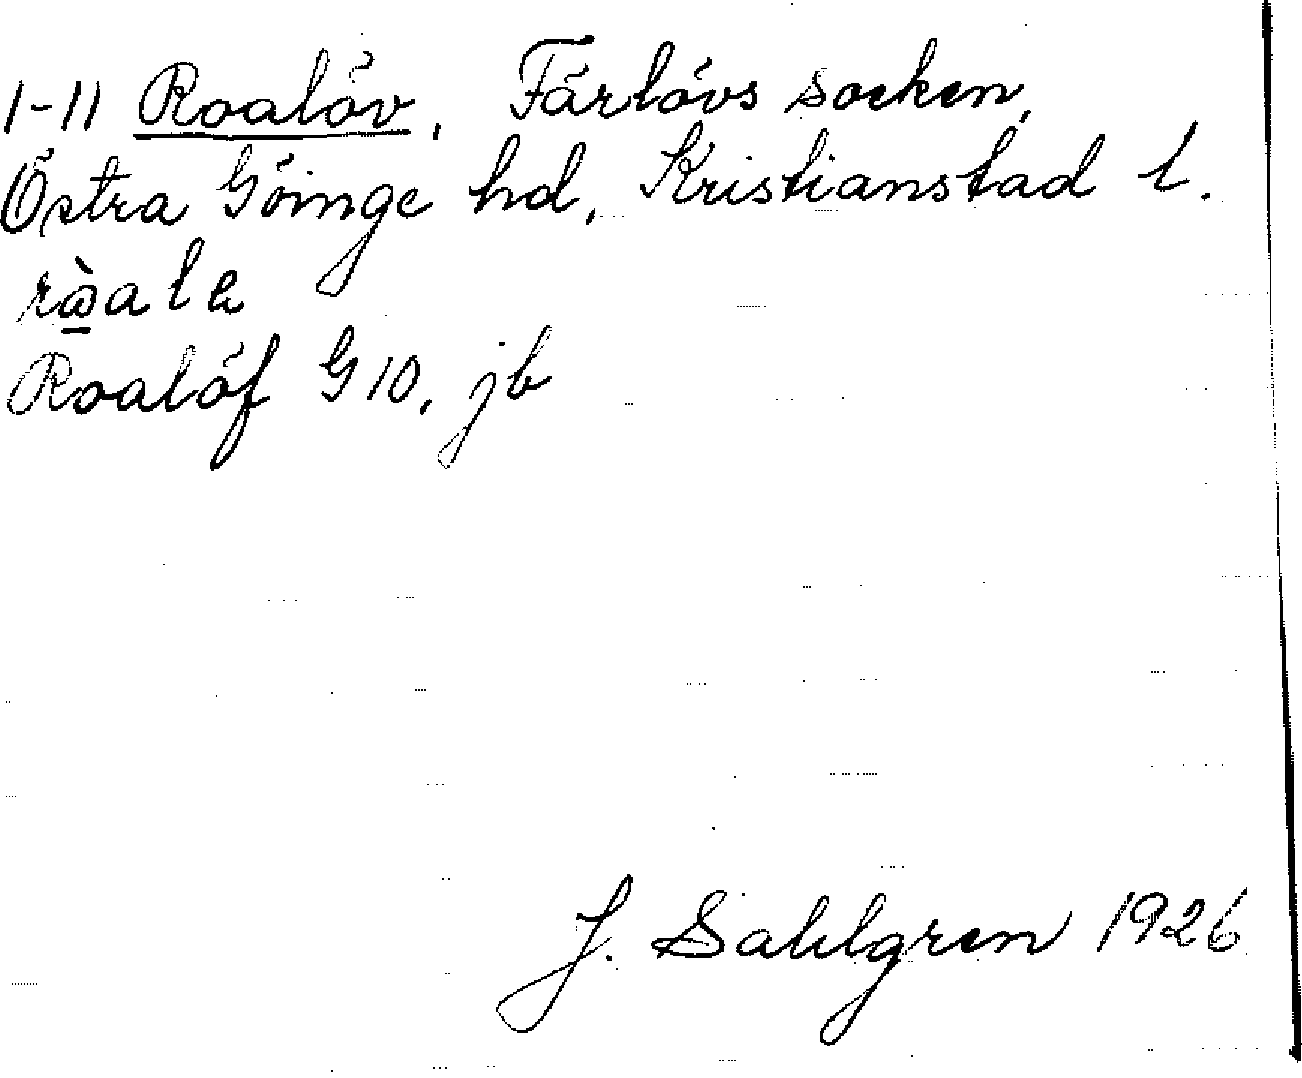 1-11 Roalöv, Färlövs socken,
Östra Göinge hd, Kristianstad l.
Roalöf G 10, jb
J. Sahlgren 1926